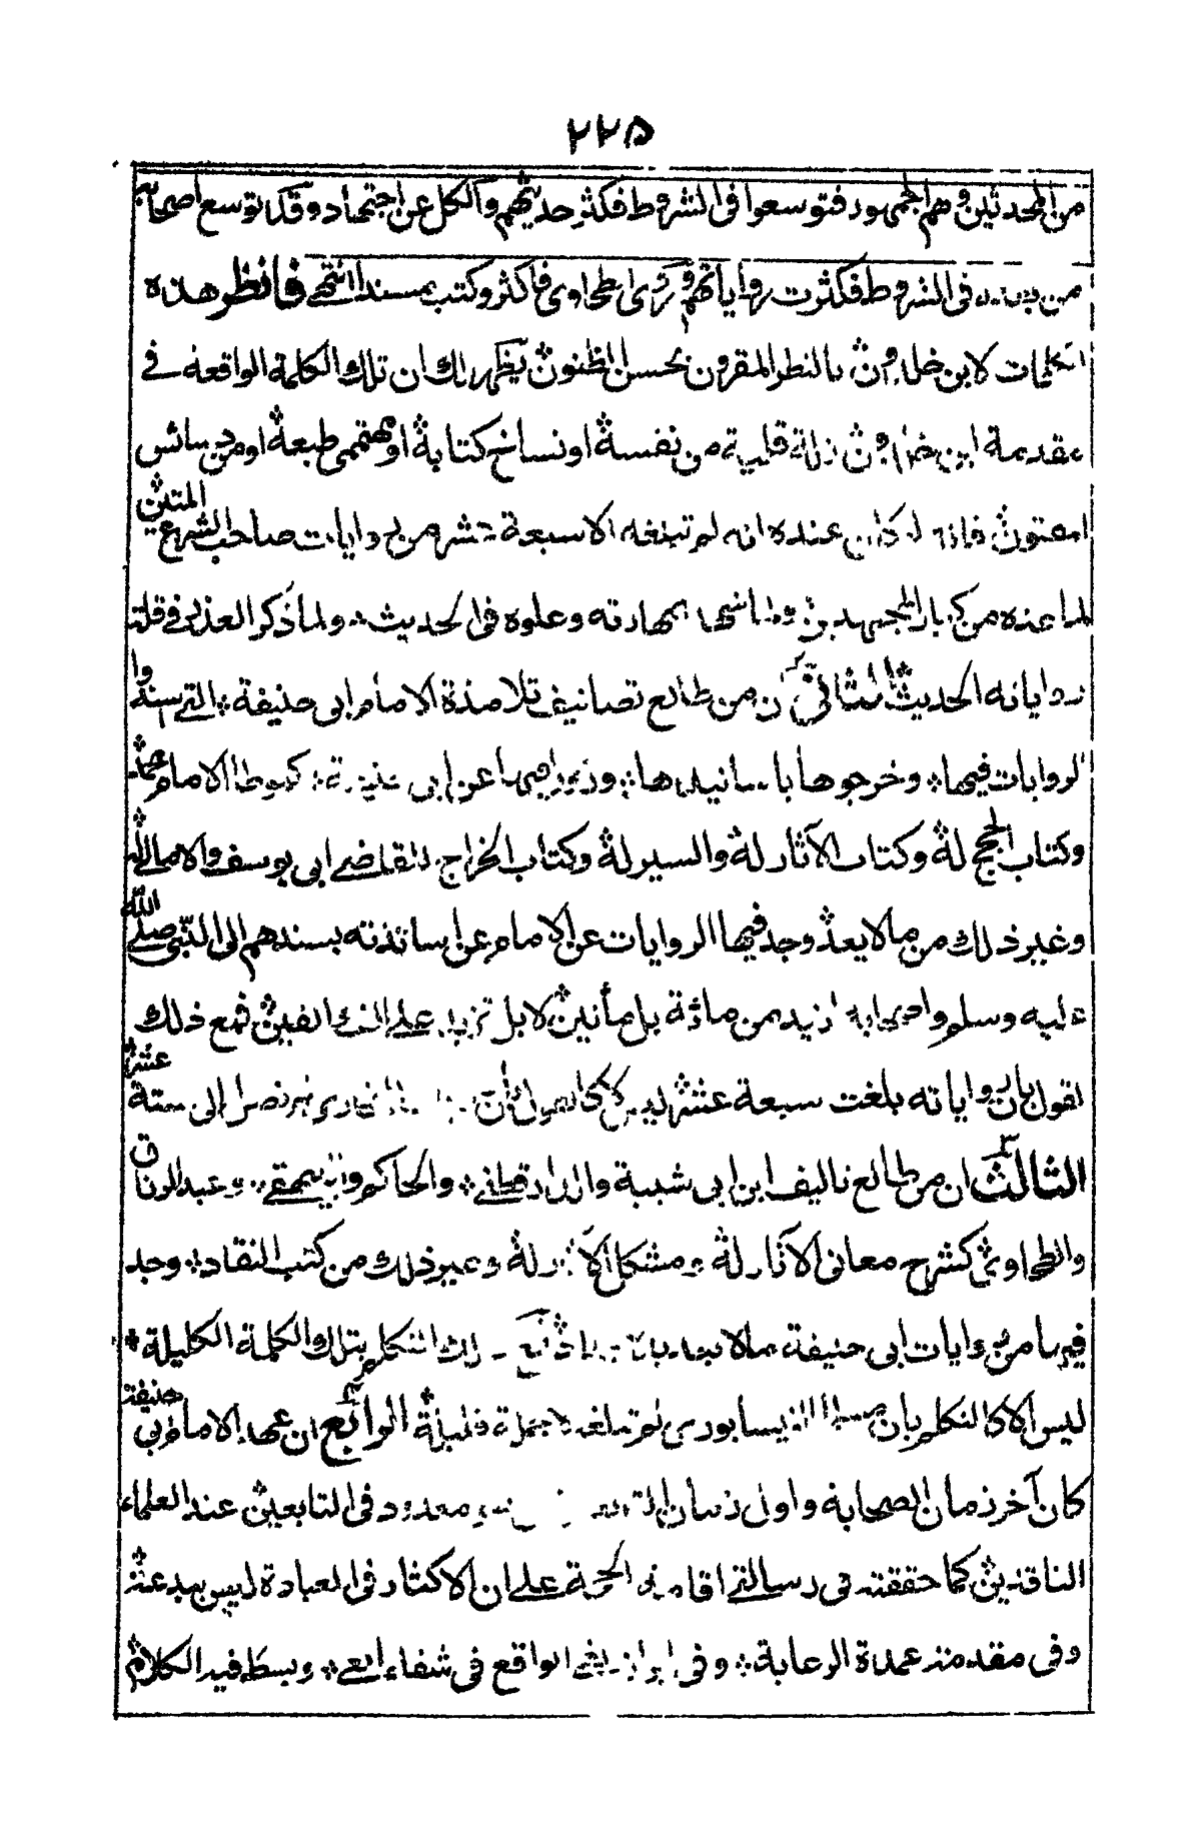 ۲۲۵
من المحدثين وهم الجمهور فتوسعوا فى الشروط فكثر حديثهم والكل عن اجتهاد وقد توسع اصحابه
من بعده فى الشروط فكثرت رواياتهم وروى الطحاوى فاكثر وكتب مسنده انتهى فانظر هذه
الكلمات لابن خلدون بالنظر المقرون بحسن الظنون يظهر لك ان تلك الكلمة الواقعة فى
مقدمة ابن خلدون زلة قلمية من نفسه او نساخ كتابه او مهتمى طبعه او من دسائس
فانه لو كان عنده انه لم تبلغه الا سبعة عشر من روايات صاحب الشرع المتين
لما عده من كبار المجتهدين ولما بمهارته وعلوه فى الحديث ولما ذكر العذر فى قلة
رواياته الحديث الثانى ان من طالع تصانيف تلامذة الامام ابى حنيفة التى
الروايات فيها وخرجوها باسانيدها عن ابى حنيفة كموطا الامام محمد
وكتاب الحجج له وكتاب الآثار له والسير له وكتاب الخراج للقاضى ابى يوسف والامالى له
وغير ذلك من مالا يعد وجد فيها الروايات عن الامام عن اساتذته بسندهم الى النبى صلى الله
عليه وسلم واصحابه ازيد من مائة بل مائتين لا بل تزيد على فمع ذلك
القول بان رواياته بلغت سبعة عشر ليس الا كالقول بان الى ستة عشر
الثالث ان من طالع تاليف ابن ابى شيبة والدارقطنى والحاكم والبيهقى وعبد الرزاق
والطحاوى كشرح معانى الآثار له ومشكل الآثار له وغير ذلك من كتب النقاد وجد
فيها من روايات ابى حنيفة مالا يعد ذلك التكلم بتلك الكلمة الكليلة
ليس الا كالتكلم بان النيسابورى لم تبلغه الا جملة قليلة الرابع ان عهد الامام ابى حنيفة
كان آخر زمان الصحابة واول زمان معدود فى التابعين عند العلماء
الناقدين كما حققته فى رسالتى اقامة الحجة على ان الاكثار فى العبادة ليس ببدعة
وفى مقدمة عمدة الرعاية وفى ابراز الغى الواقع فى شفاء العى وبسط فيه الكلام